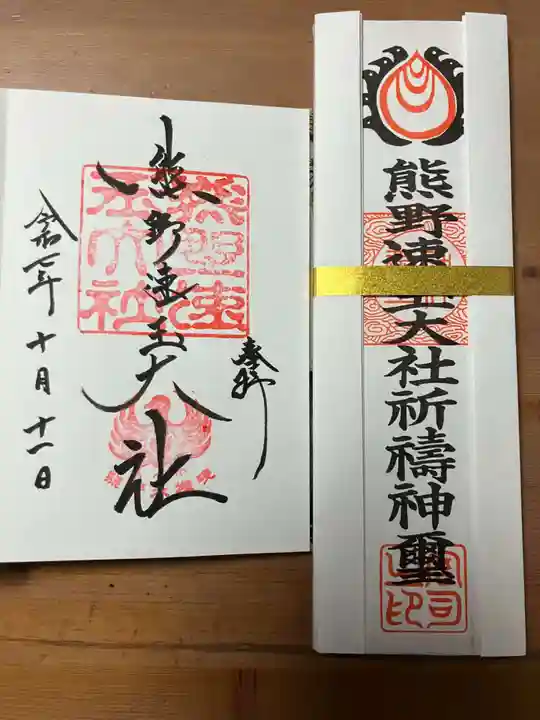 奉拝
熊野速玉大社
令和七年十月十一日
熊野速玉大社祈禱神璽
宮司之印